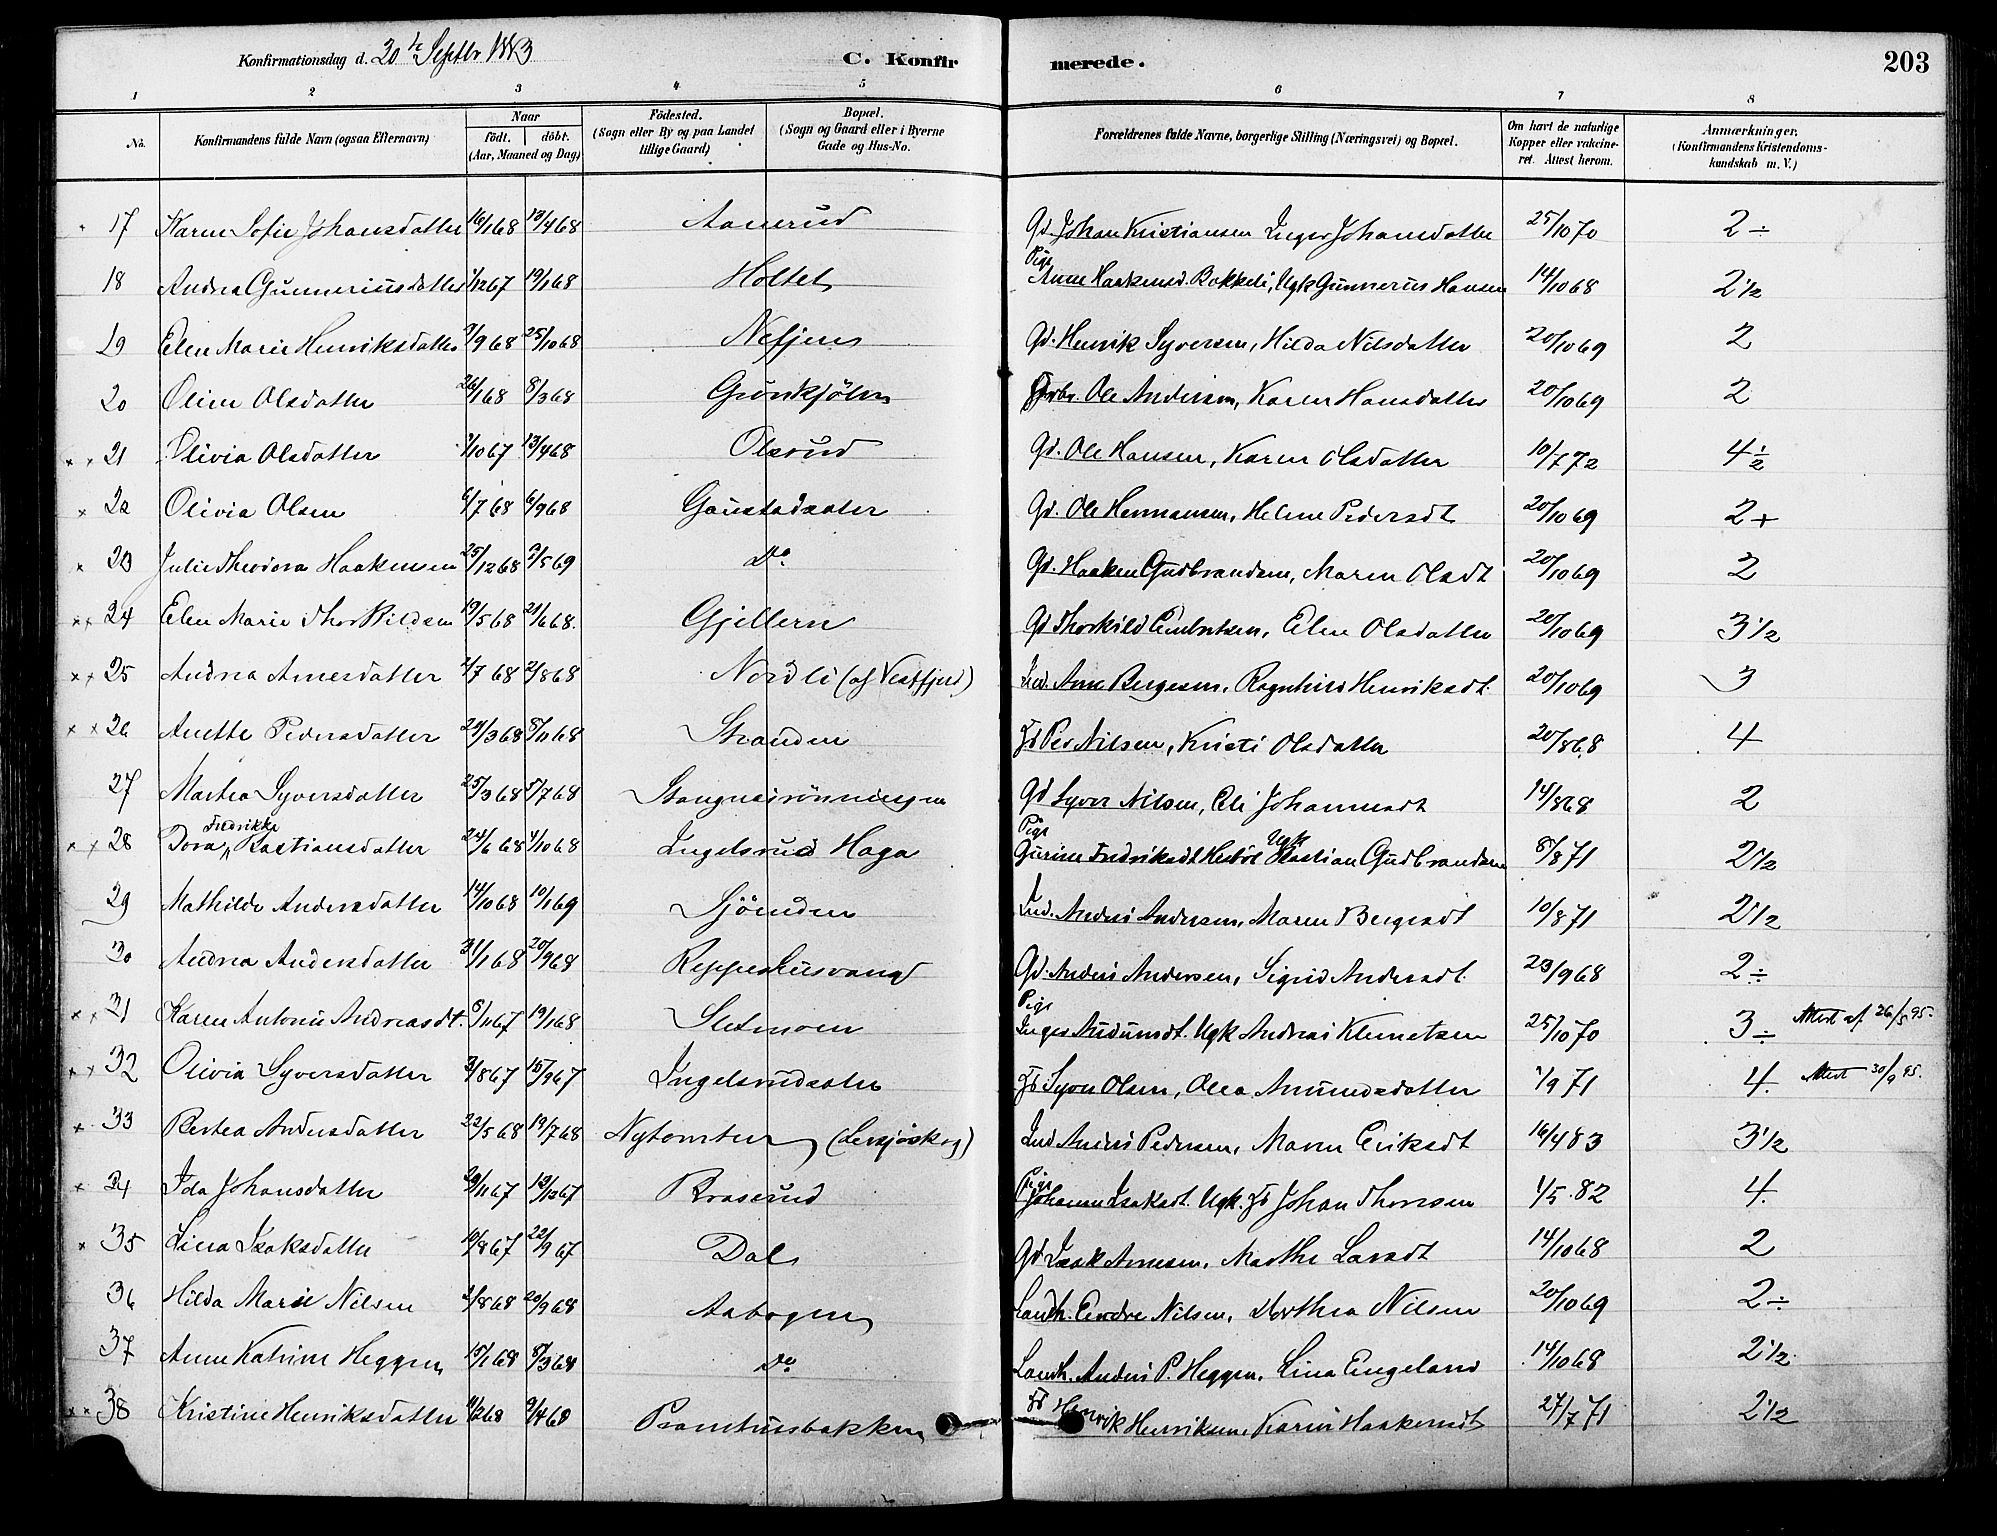 Konfirmationsdag d. 30te Septbr 1883 C. Konfirmerede. 203
1 2 3 4 5 6 7 8
No. Konfirmandens fulde Navn (ogsaa Efternavn) Naar födt. döbt. (Aar, Maaned og Dag) Födested. (Sogn eller By og paa Landet tillige Gaard) Bopæl. (Sogn og Gaard eller i Byerne Gade og Hus-No. Forældrenes fulde Navne, borgerlige Stilling (Næringsvei) og Bopæl. Om havt de naturlige Kopper eller vakcineret. Attest herom. Anmærkninger. (Konfirmandens Kristendomskundskab m. V.)
17 Karen Sofie Johansdatter 16/1 68 13/4 68 Aanerud Gd. Johan Kristiansen Inger Johansdatter 25/10 70 2÷
18 Andrea Gunneriusdatter 1/12 67 19/1 68 Holtet Pige Anne Haakensd. Bakkeli, Ugk Gunnerus Hansen 14/10 68 2 1/2
19 Elen Marie Henriksdatter 9/9 68 25/10 68 Gd. Henrik Syversen, Hilda Nilsdatter 20/10 69 2
20 Oline Olsdatter 26/1 68 8/3 68 Ole Andersen, Karen Hansdatter 20/10 69 2
21 Olivia Olsdatter 13/4 68 Olsrud Gd. Ole Hansen, Karen Olsdatter 10/7 72 4 1/2
22 Olivia Olsen 6/7 68 6/9 68 Gaustadsæter Gd. Ole Hermansen, Helene Pedersdt 20/10 69 2+
23 Julie Theodora Haakensen 25/12 68 2/5 69 Do Gd. Haaken Gudbrandsen, Maren Olsdt 20/10 69 2
24 Elen Marie Thorkildsen 19/5 68 21/6 68. Gjellern Gd Thorkild Embretsen, Elen Olsdatter 20/10 69 3 1/2
25 Andrea Arnesdatter 2/7 68 2/8 68 Nordli (af Vestfjeld) Ind. Arne Bergesen, Ragnhild Henriksdt. 20/10 69 3
26 Anette Pedersdatter 24/3 68 8/11 68 Stranden Per Nilsen, Kristi Olsdatter 20/8 68 4
27 Martea Syversdatter 25/3 68 5/7 68 Gd Syver Nilsen, Eli Johannesdt 14/8 68 2
28 Dora Fredrikke Bastiansdatter 24/6 68 4/10 68 Ingelsrud Haga Pige Gurine Fredriksdt Ugk Bastian Gudbrandsen 8/8 71 2 1/2
29 Mathilde Andersdatter 14/10 68 10/1 69 Sjöenden Ind. Anders Andersen, Maren Bergesdt 10/8 71 2 1/2
30 Andrea Andersdatter 31/1 68 20/9 68 Reppeshusvang Gd. Anders Andersen, Sigrid Andersdt. 23/9 68 2÷
31 Karen Antonie Andreasdt. 6/11 67 19/1 68 Sletmoen Pige Inger Audunsdt. Ugk Andreas Klemetsen 25/10 70 3÷ Attest af. 26/5 95.
32 Olivia Syversdatter 3/8 67 15/9 67 Ingelsrudsæter Syver Olsen, Olea Amundsdatter 1/9 71 4. Attest 30/9 95.
33 Bertea Andersdatter 22/5 68 19/7 68 Nytomten Ind Anders Pedersen, Maren Eriksdt 16/4 83 3 1/2
34 Ida Johansdatter 29/11 67 Braserud Pige Johanne Isaksdt. Ugk. Johan Thoresen 1/5. 82 4.
35 Lina Isaksdatter 10/8 67 22/9 67 Dal Gd Isak Arnesen, Marthe Larsdt 14/10 68 2
36 Hilda Marie Nilsen 2/8 68 20/9 68 Aabogen Landh. Endre Nilsen, Dorthea Nilsen 20/10 69 2÷
37 Anne Katrine Heggen 15/1 68 8/3 68 Do Landh. Anders P. Heggen, Lina Engeland 14/10 68 2 1/2
38 Kristine Henriksdatter 11/2 68 9/4 68 Pramhusbakken Henrik Henriksen, Karen Haakensdt 27/7 71 2 1/2